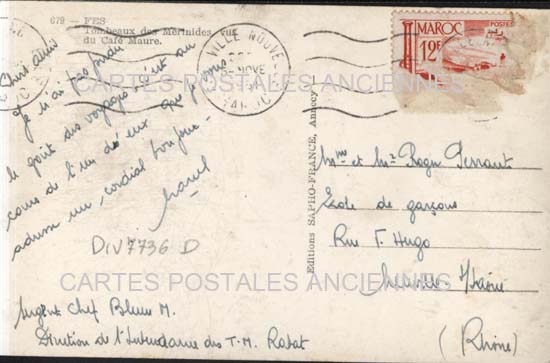 679 - FES
Tombeaux des Mérinides vus
du Café Maure.
VILLE NOUVELLE
MAROC
MAROC
POSTES
12F
Cher ami
Je n'ai pas perdu
le goût des voyages c'est au
cours de l'un d'eux que je vous
adresse un cordial bonjour -
Marcel
DIV7736 D
CARTES POSTALES ANCIENNES
Editions SAPHO-FRANCE, Annecy
Mme et Mr Roger Perrant
Ecole de garçons
Rue V. Hugo
s/Saône
(Rhône)
CARTES POSTALES ANCIENNES
Sergent Chef Blum M.
Direction de l'Intendance des T.M. Rabat